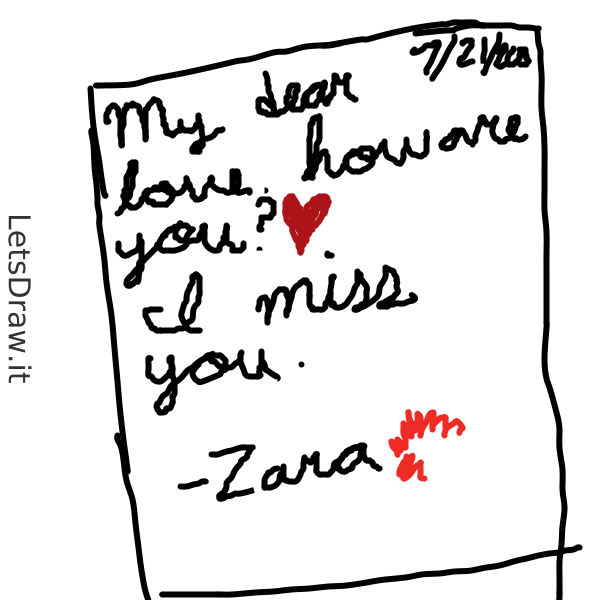 7/21/
My dear
love. how are
you?
I miss
you.
-Zara
LetsDraw.it